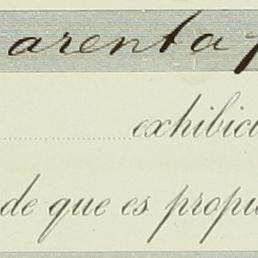 arenta
exhibic
de que es propi